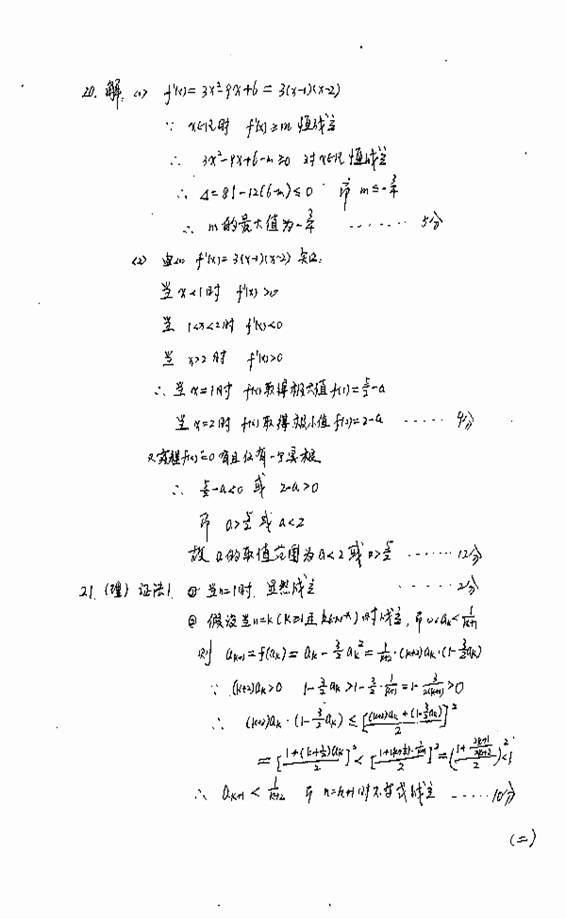 20. 解: (1) f'(x)=3x²-9x+6=3(x-1)(x-2)
∵ x∈R时 f'(x)≥m 恒成立
∴ 3x²-9x+6-m≥0 对x∈R恒成立
∴ Δ=81-12(6-m)≤0 即 m≤-3/4
∴ m的最大值为-3/4 ……5分
(2) 由(1) f'(x)=3(x-1)(x-2)
当 x<1时 f'(x)>0
当 1<x<2时 f'(x)<0
当 x>2时 f'(x)>0
∴ 当 x=1时 f(x)取得极大值 f(1)=5/2-a
当 x=2时 f(x)取得极小值 f(2)=2-a ……9分
又方程f(x)=0有且仅有一个实根
∴ 5/2-a<0 或 2-a>0
即 a>5/2 或 a<2
故 a的取值范围为 a<2 或 a>5/2 ……12分
21. (理) 证法1. ① 当n=1时, 显然成立 ……2分
② 假设当n=k(k≥1且k∈N*)时成立, 即 0<a_k<1/(k+1)
则 a_{k+1}=f(a_k)=a_k-3/2 a_k²=1/(k+2)·(k+2)a_k·(1-3/2 a_k)
∵ (k+2)a_k>0 1-3/2 a_k>1-3/2·1/(k+1)=1-3/(2(k+1))>0
∴ (k+2)a_k·(1-3/2 a_k)≤[((k+2)a_k+(1-3/2 a_k))/2]²
=[(1+(k+1/2)a_k)/2]²<[(1+(k+1/2)·1/(k+1))/2]²=((1+(2k+1)/(2k+2))/2)²<1
∴ a_{k+1}<1/(k+2) 即 n=k+1时不等式成立 ……10分
(二)